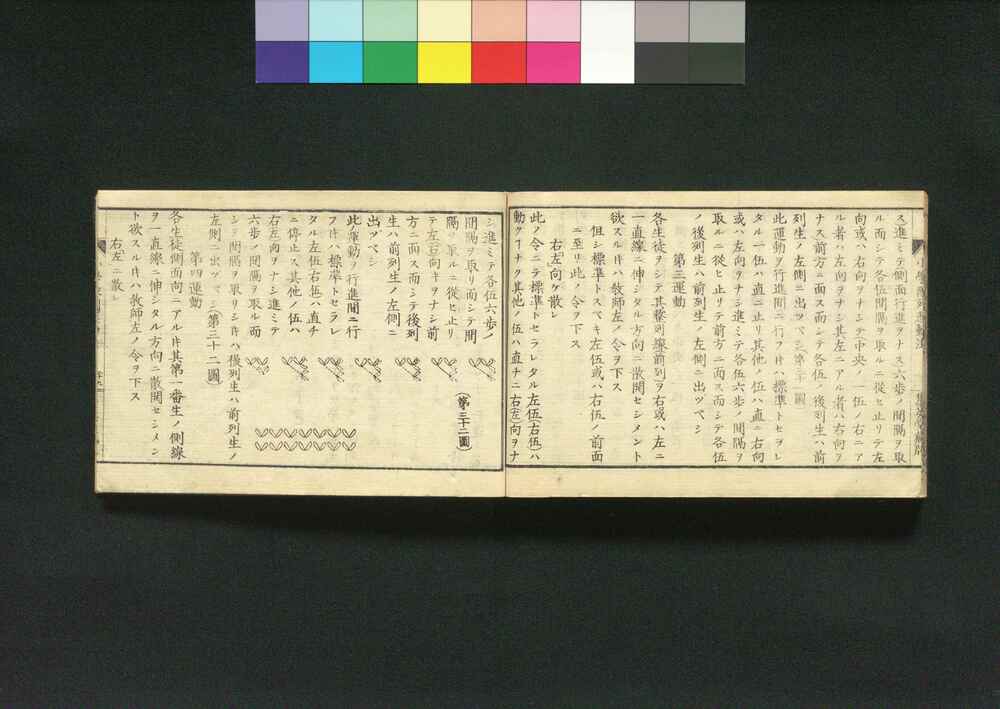 ス進ミテ側面行進ヲナス六歩ノ間隔ヲ取
ル而シテ各伍間隔ヲ取ルニ從ヒ止リテ左
向或ハ右向ヲナシテ中央ノ一伍ノ右ニア
ル者ハ左向ヲナシ其左ニアル者ハ右向ヲ
ナス前方ニ面ス而シテ各伍ノ後列生ハ前
列生ノ左側ニ出ツベシ(第三十一圖)
此運動ヲ行進間ニ行フ𪜈ハ標準トセラレ
タル一伍ハ直ニ止リ其他ノ伍ハ直ニ右向
或ハ左向ヲナシ進ミテ各伍六歩ノ間隔ヲ
取ルニ從ヒ止リテ前方ニ面ス而シテ各伍
ノ後列生ハ前列生ノ左側ニ出ツベシ
第三運動
各生徒ヲシテ其整列線前列ヲ右或ハ左ニ
一直線ニ伸シタル方向ニ散開セシメント
欲スル𪜈ハ敎師左ノ令ヲ下ス
但シ標準トスベキ左伍或ハ右伍ノ前面
ニ至リ此ノ令ヲ下ス
右「左」向ケ散レ
此ノ令ニテ標準トセラレタル左伍(右伍)ハ
動クコナク其他ノ伍ハ直チニ右(左)向ヲナ
シ進ミテ各伍六歩ノ
間隔ヲ取リ而シテ間
隔ヲ取ルニ從ヒ止リ
テ左右向キヲナシ前
方ニ面ス而シテ後列
生ハ前列生ノ左側ニ
出ツベシ
此ノ運動ヲ行進間ニ行
フ𪜈ハ標準トセラレ
タル左伍右伍ハ直チ
ニ停止ス其他ノ伍ハ
右左向ヲナシ進ミテ
六歩ノ間隔ヲ取ル而
シテ間隔ヲ取リシ𪜈ハ後列生ハ前列生ノ
左側ニ出ツベシ(第三十二圖)
(第三十二圖)
第四運動
各生徒側面向ニアル𪜈其第一番生ノ側線
ヲ一直線ニ伸シタル方向ニ散開セシメン
ト欲スル𪜈ハ敎師左ノ令ヲ下ス
右「左」ニ散レ